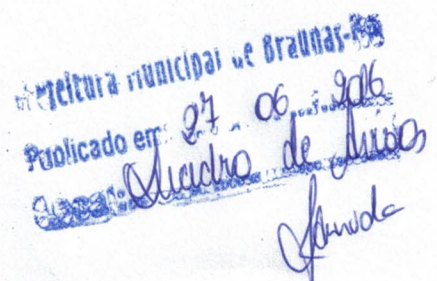 Prefeitura Municipal de Braúnas-MG
Publicado em: 27 06 2016
Local: Quadro de Avisos